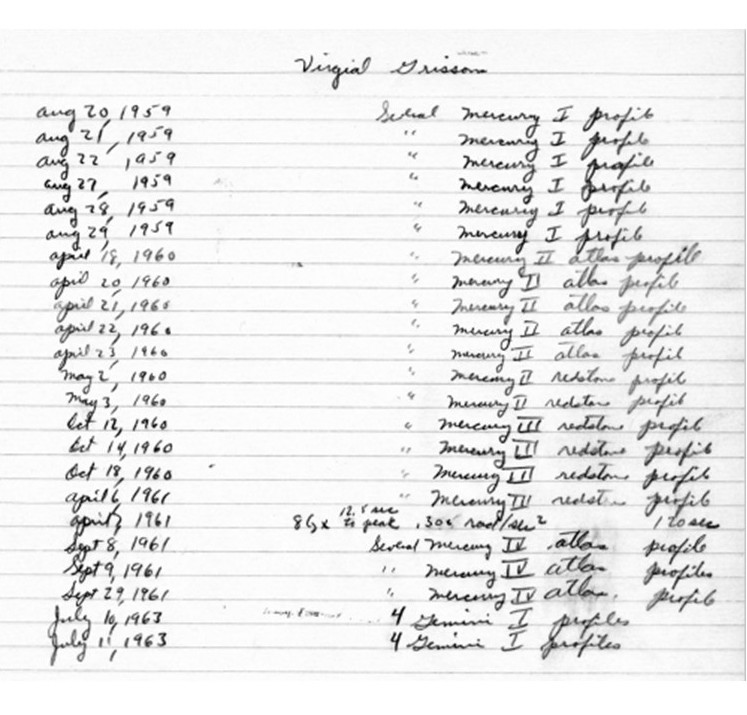 Virgial Grissom
Aug 20, 1959 Several Mercury I profile
Aug 21, 1959 " Mercury I profile
Aug 22, 1959 " Mercury I profile
Aug 27, 1959 " Mercury I profile
Aug 28, 1959 " Mercury I profile
Aug 29, 1959 " Mercury I profile
April 18, 1960 " Mercury II atlas profile
April 20, 1960 " Mercury II atlas profile
April 21, 1960 " Mercury II atlas profile
April 22, 1960 " Mercury II atlas profile
April 23, 1960 " Mercury II atlas profile
May 2, 1960 " Mercury II redstone profile
May 3, 1960 " Mercury II redstone profile
Oct 12, 1960 " Mercury III redstone profile
Oct 14, 1960 " Mercury III redstone profile
Oct 18, 1960 " Mercury III redstone profile
April 6, 1961 " Mercury III redstone profile
April 7, 1961 8 Gx 12.5 sec to peak .305 rad/sec² 120 sec
Sept 8, 1961 Several Mercury IV atlas profile
Sept 9, 1961 " Mercury IV atlas profiles
Sept 29, 1961 " Mercury IV atlas, profile
July 10, 1963 4 Gemini I profiles
July 11, 1963 4 Gemini I profiles